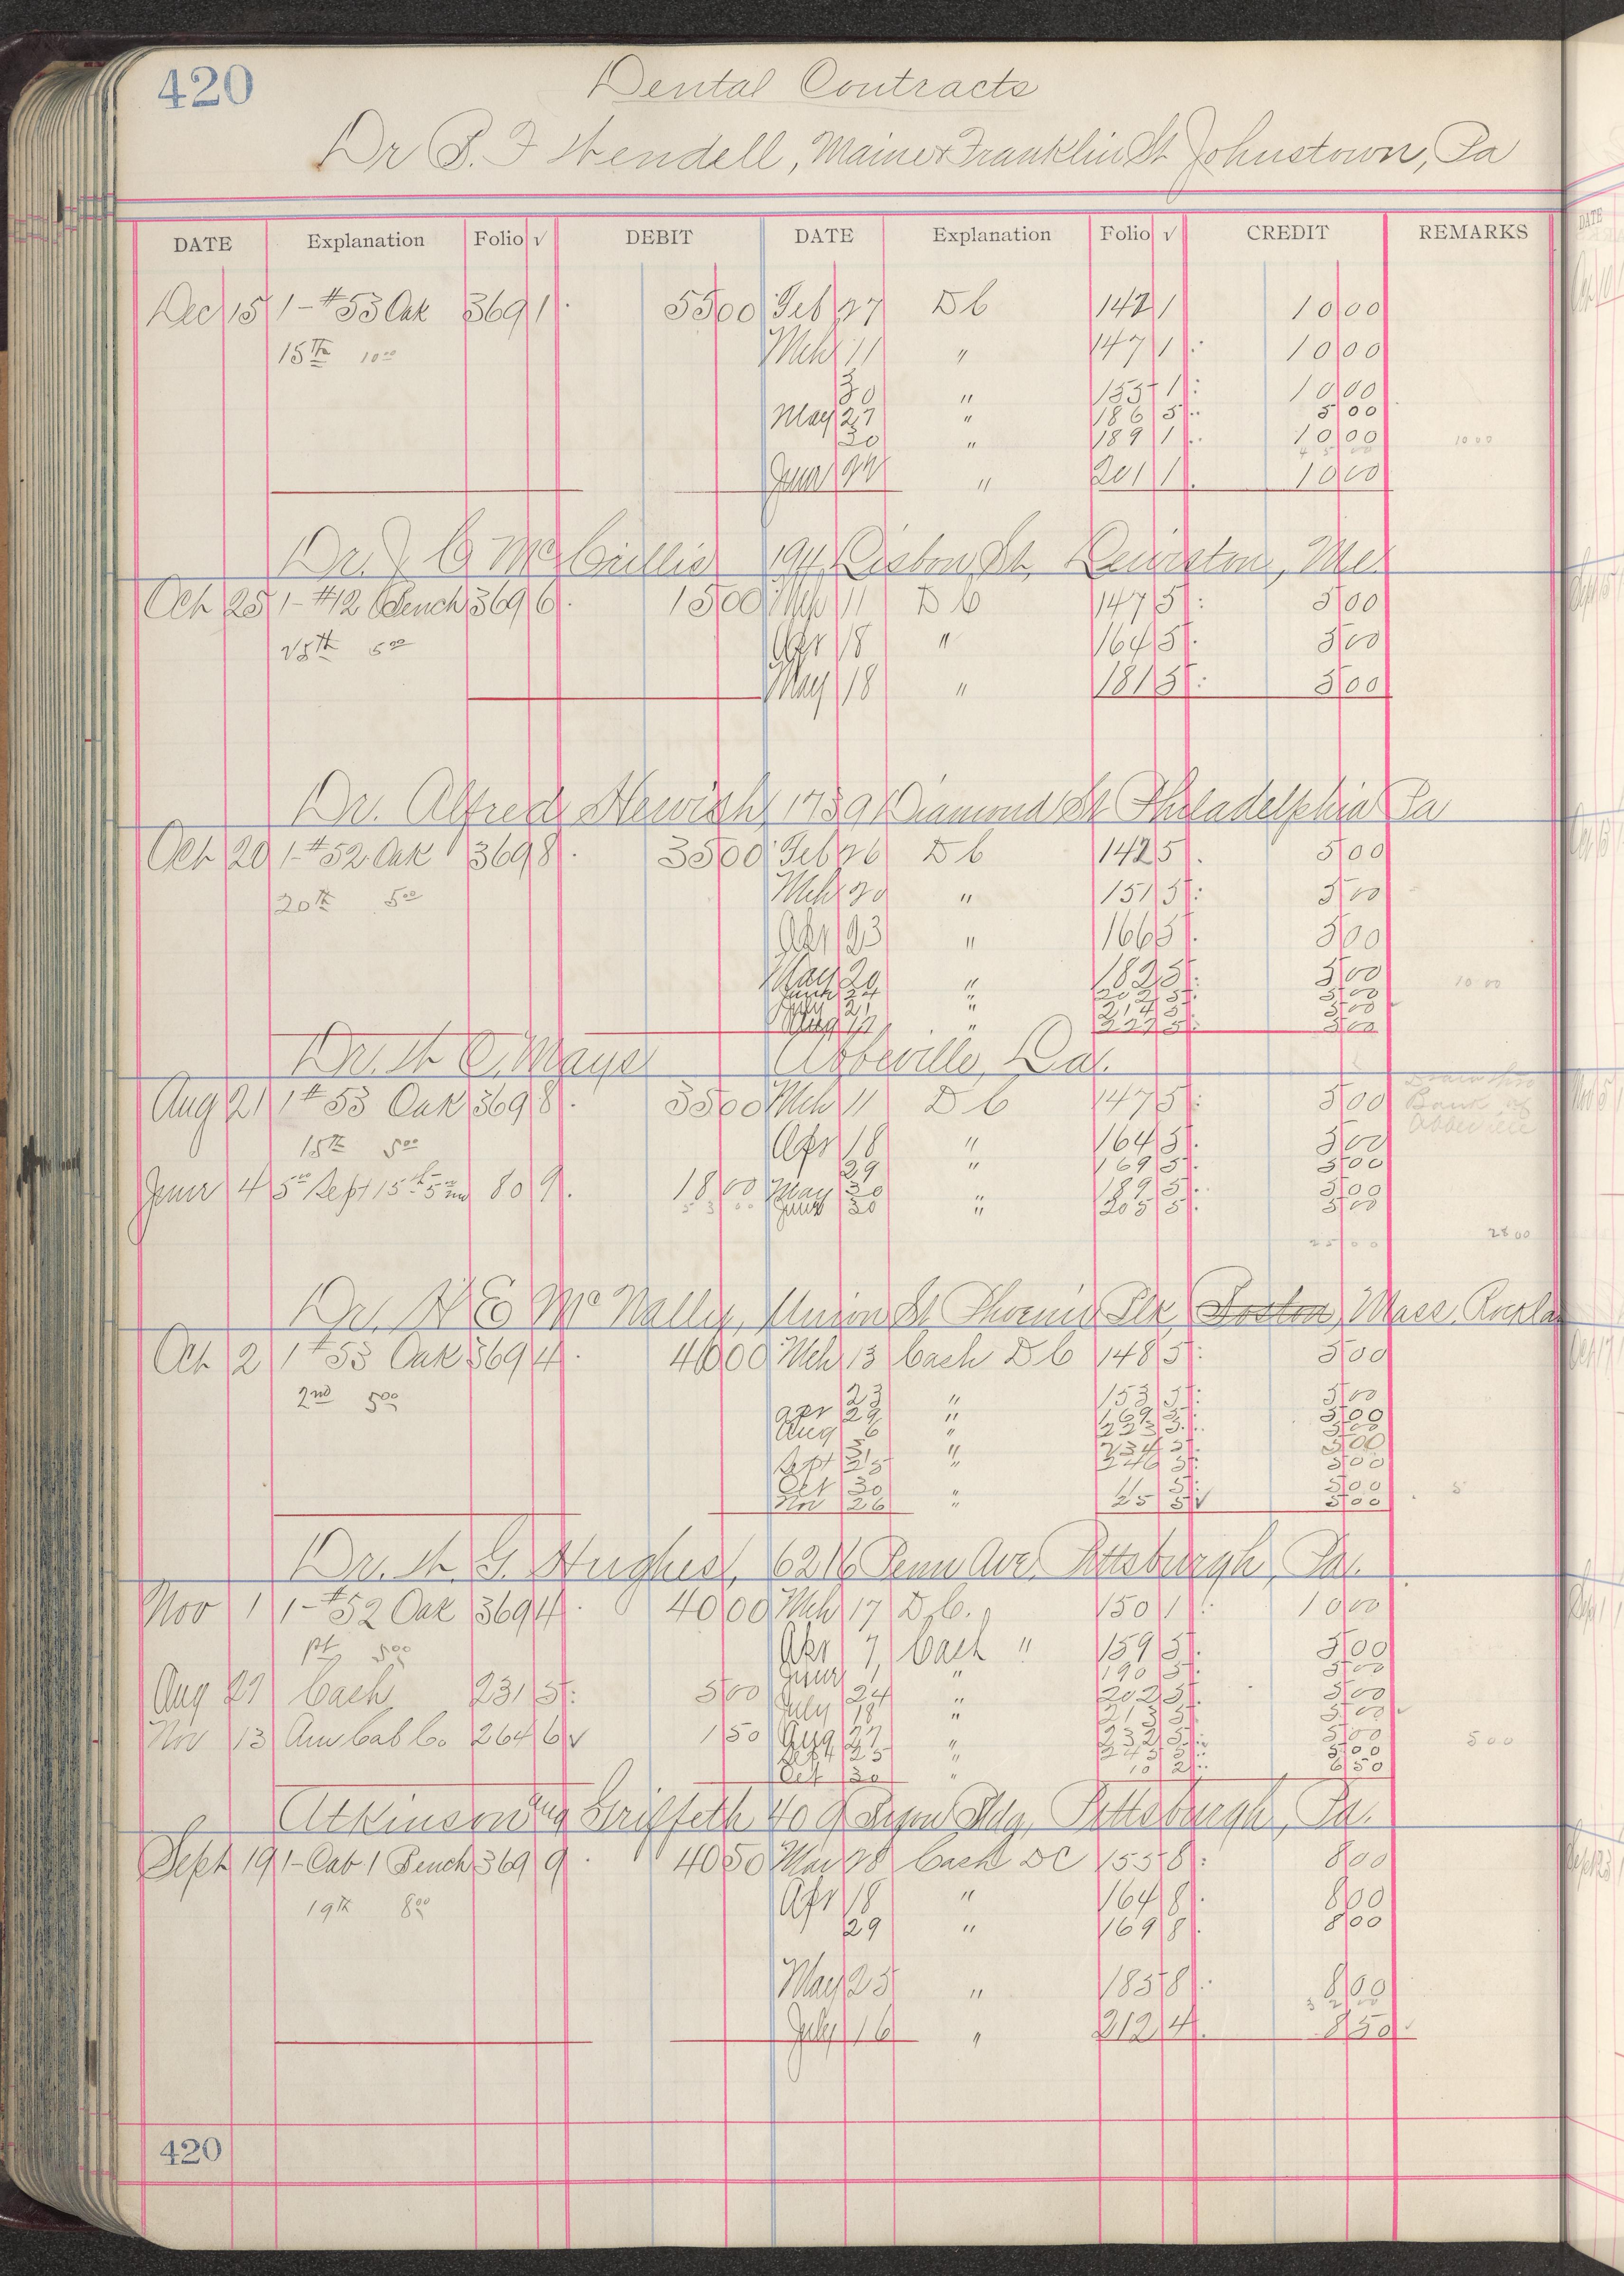 420
Dental Contracts
Dr S. F Wendell, Main & Franklin St Johnstown, Pa
DATE Explanation Folio √ DEBIT DATE Explanation Folio √ CREDIT REMARKS
Dec 15 1-#53 Oak 369 1 55 00 Feb 27 Db 142 1 10 00
15th 10 00 Mch 11 " 147 1 10 00
30 " 155 1 10 00
May 27 " 186 5 5 00
30 " 189 1 10 00 10 00
45 00
June 24 " 201 1 10 00
Dr. J C McCrillis 194 Lisbon St, Lewiston, Me.
Oct 25 1-#12 Bench 369 6 15 00 Mch 11 Db 147 5 5 00
25th 5 00 Apr 18 " 164 5 5 00
May 18 " 181 5 5 00
Dr. Alfred Hewish, 1739 Diamond St Philadelphia Pa
Oct 20 1-#52 Oak 369 8 35 00 Feb 26 Db 142 5 5 00
20th 5 00 Mch 20 " 151 5 5 00
Apr 23 " 166 5 5 00
May 20 " 182 5 5 00 10 00
June 24 " 202 5 5 00
July 21 " 214 5 5 00
Aug " 227 5 5 00
Dr. W C, Mays Abbeville, La.
Aug 21 1 # 53 Oak 369 8 35 00 Mch 11 Db 147 5 5 00 Bank of Abbeville
15th 5 00 Apr 18 " 164 5 5 00
29 " 169 5 5 00
June 4 5 00 Sept 15th 80 9 18 00 May 30 189 5 5 00
53 00 June 30 " 205 5 5 00
25 00 28 00
Dr. H E McNally, Union St Phoenix Blk, Boston, Mass. Rockla
Oct 2 1 #53 Oak 369 4 40 00 Mch 13 Cash Db 148 5 5 00
2nd 5 00 23 " 153 5 5 00
Apr 29 " 169 5 5 00
Aug 6 " 223 5 5 00
31 " 234 5 5 00
Sept 25 " 246 5 5 00
Oct 30 5 5 00 5
Nov 26 " 25 5 √ 5 00
Dr. W. G. Hughes, 6216 Penn Ave, Pittsburgh, Pa.
Nov 1 1-#52 Oak 369 4 40 00 Mch 17 Db. 150 1 10 00
5 00 Apr 7 Cash " 159 5 5 00
June 1 " 190 5 5 00
Aug 27 Cash 231 5 5 00 24 " 202 5 5 00
July 18 " 213 5 5 00
Nov 13 Am Cab Co 264 6 √ 1 50 Aug 27 232 5 5 00 5 00
Sept 25 " 245 5 5 00
Oct 30 " 10 2 6 50
Atkinson and Griffeth 409 Lyon Bldg, Pittsburgh, Pa.
Sept 19 1-Cab 1 Bench 369 9 40 50 Mar 28 Cash DC 155 8 8 00
19th 8 00 Apr 18 " 164 8 8 00
29 " 169 8 8 00
May 25 " 185 8 8 00
32 00
July 16 " 212 4 8 50
420